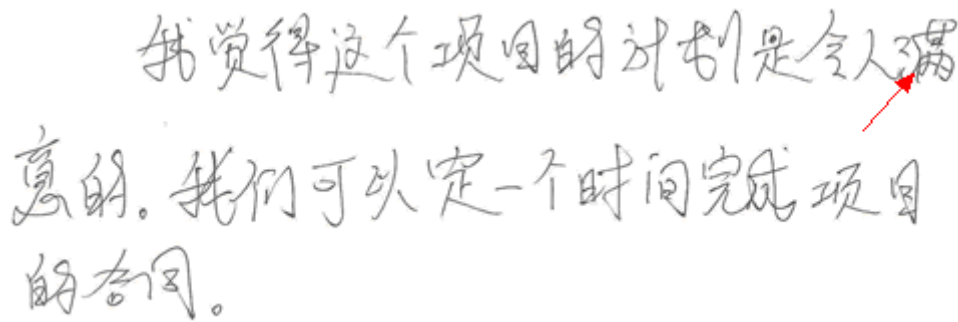 我觉得这个项目的计划是令人满
意的。我们可以定一个时间完成项目
的合同。